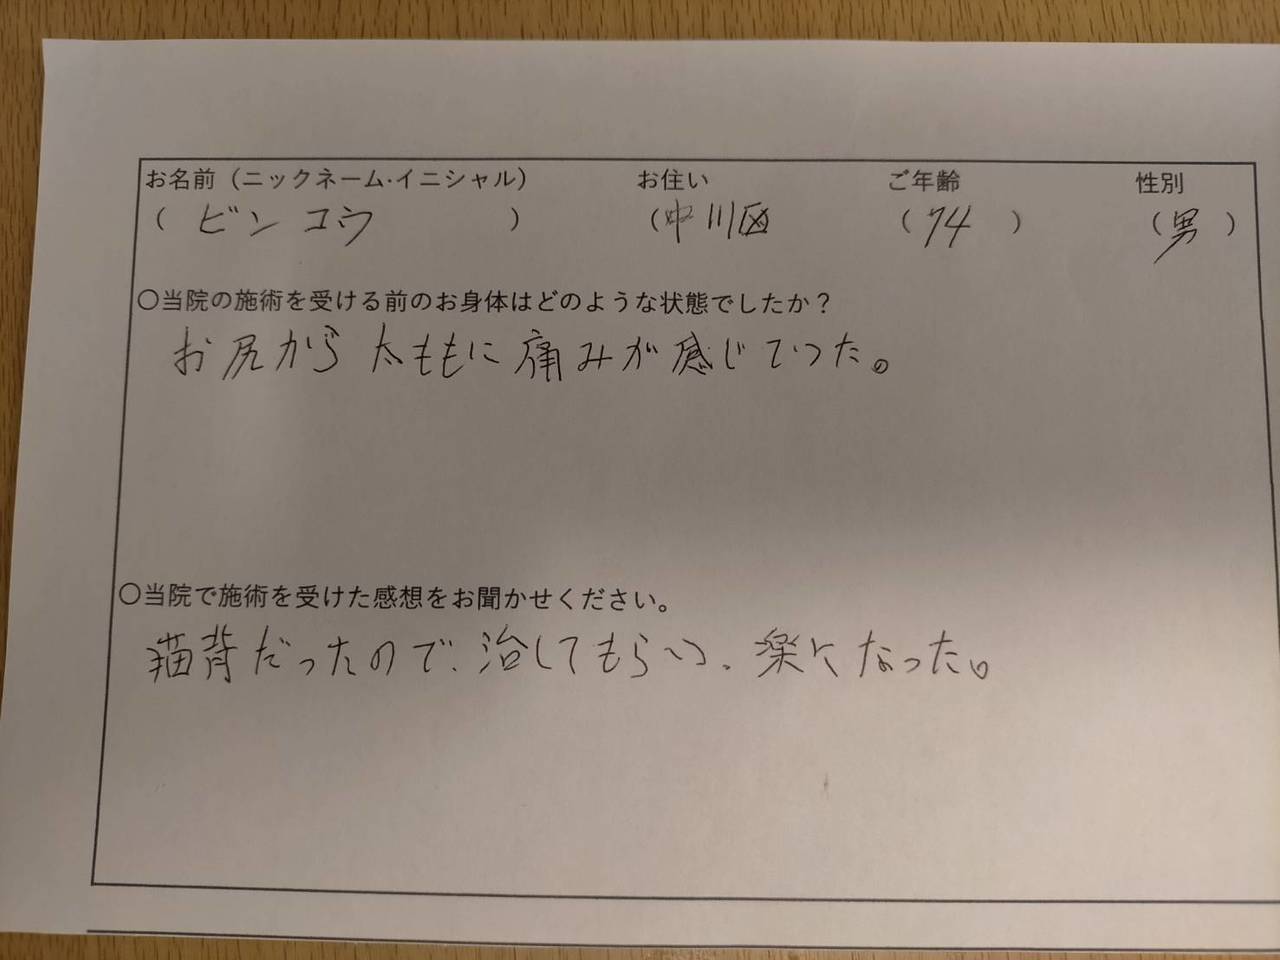 お名前（ニックネーム・イニシャル） お住い ご年齢 性別
（ビンコウ ） （中川区 （74 ） （男 ）
○当院の施術を受ける前のお身体はどのような状態でしたか？
お尻から太ももに痛みが感じていつた。
○当院で施術を受けた感想をお聞かせください。
猫背だったので、治してもらい、楽になった。